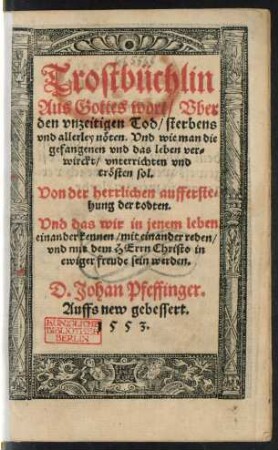 Trostbüchlin
Aus Gottes wort / Vber
den vnzeitigen Tod / sterbens
vnd allerley nöten. Vnd wie man die
gefangenen vnd das leben ver-
wirckt / vnterrichten vnd
trösten sol.
Von der herrlichen aufferste-
hung der todten.
Vnd das wir in jenem leben
einander kennen / mit einander reden /
vnd mit dem HErrn Christo in
ewiger freude sein werden.
D. Johan Pfeffinger.
Auffs new gebessert.
1553.
KÖNIGLICHE
BIBLIOTHEK
BERLIN